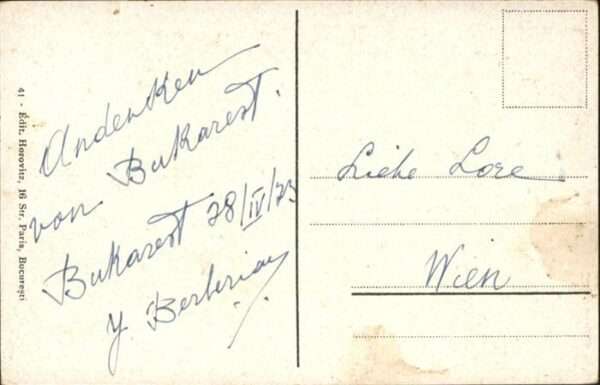 41 - Édit. Horovitz, 16 Str. Paris, Bucureşti
Andenken
von Bukarest.
Bukarest 28/IV/23
Y. Berberian
Liebe Lore
Wien